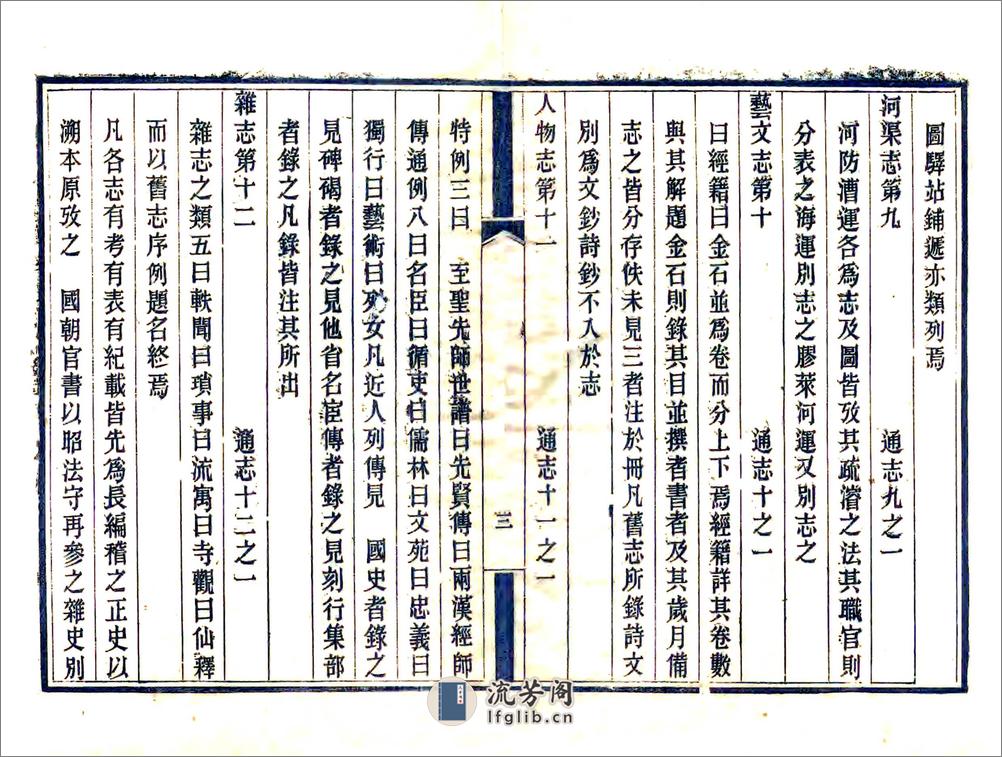 圖驛站鋪遞亦類列焉
河渠志第九　通志九之一
河防漕運各爲志及圖皆攷其疏濬之法其職官則
分表之海運別志之膠萊河運又別志之
藝文志第十　通志十之一
曰經籍曰金石並爲卷而分上下焉經籍詳其卷數
與其解題金石則錄其目並撰者書者及其歲月備
志之皆分存佚未見三者注於冊凡舊志所錄詩文
別爲文鈔詩鈔不入於志
人物志第十一　通志十一之一
三
特例三曰　至聖先師世譜曰先賢傳曰兩漢經師
傳通例八曰名臣曰循吏曰儒林曰文苑曰忠義曰
獨行曰藝術曰列女凡近人列傳見　國史者錄之
見碑碣者錄之見他省名宦傳者錄之見刻行集部
者錄之凡錄皆注其所出
雜志第十二　通志十二之一
雜志之類五曰軼聞曰瑣事曰流寓曰寺觀曰仙釋
而以舊志序例題名終焉
凡各志有考有表有紀載皆先爲長編稽之正史以
溯本原攷之　國朝官書以昭法守再參之雜史別
流芳阁
lfglib.cn